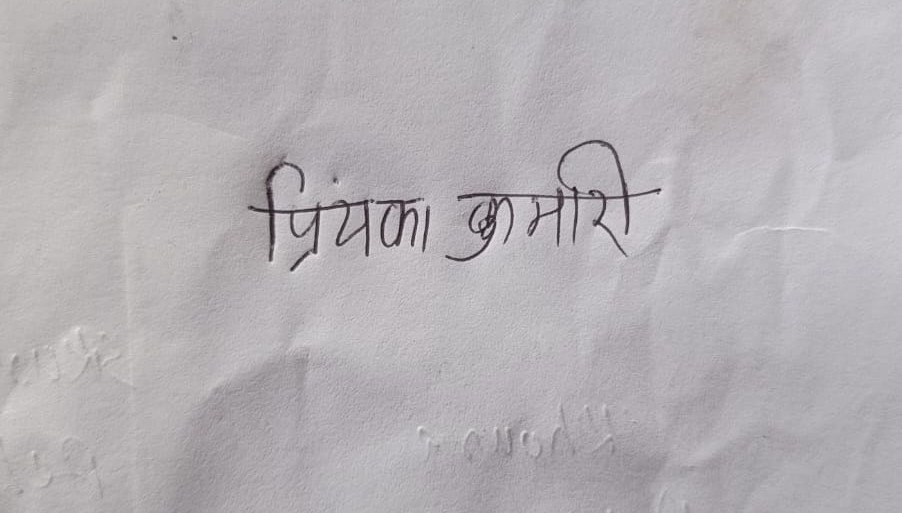 प्रियंका कुमारी